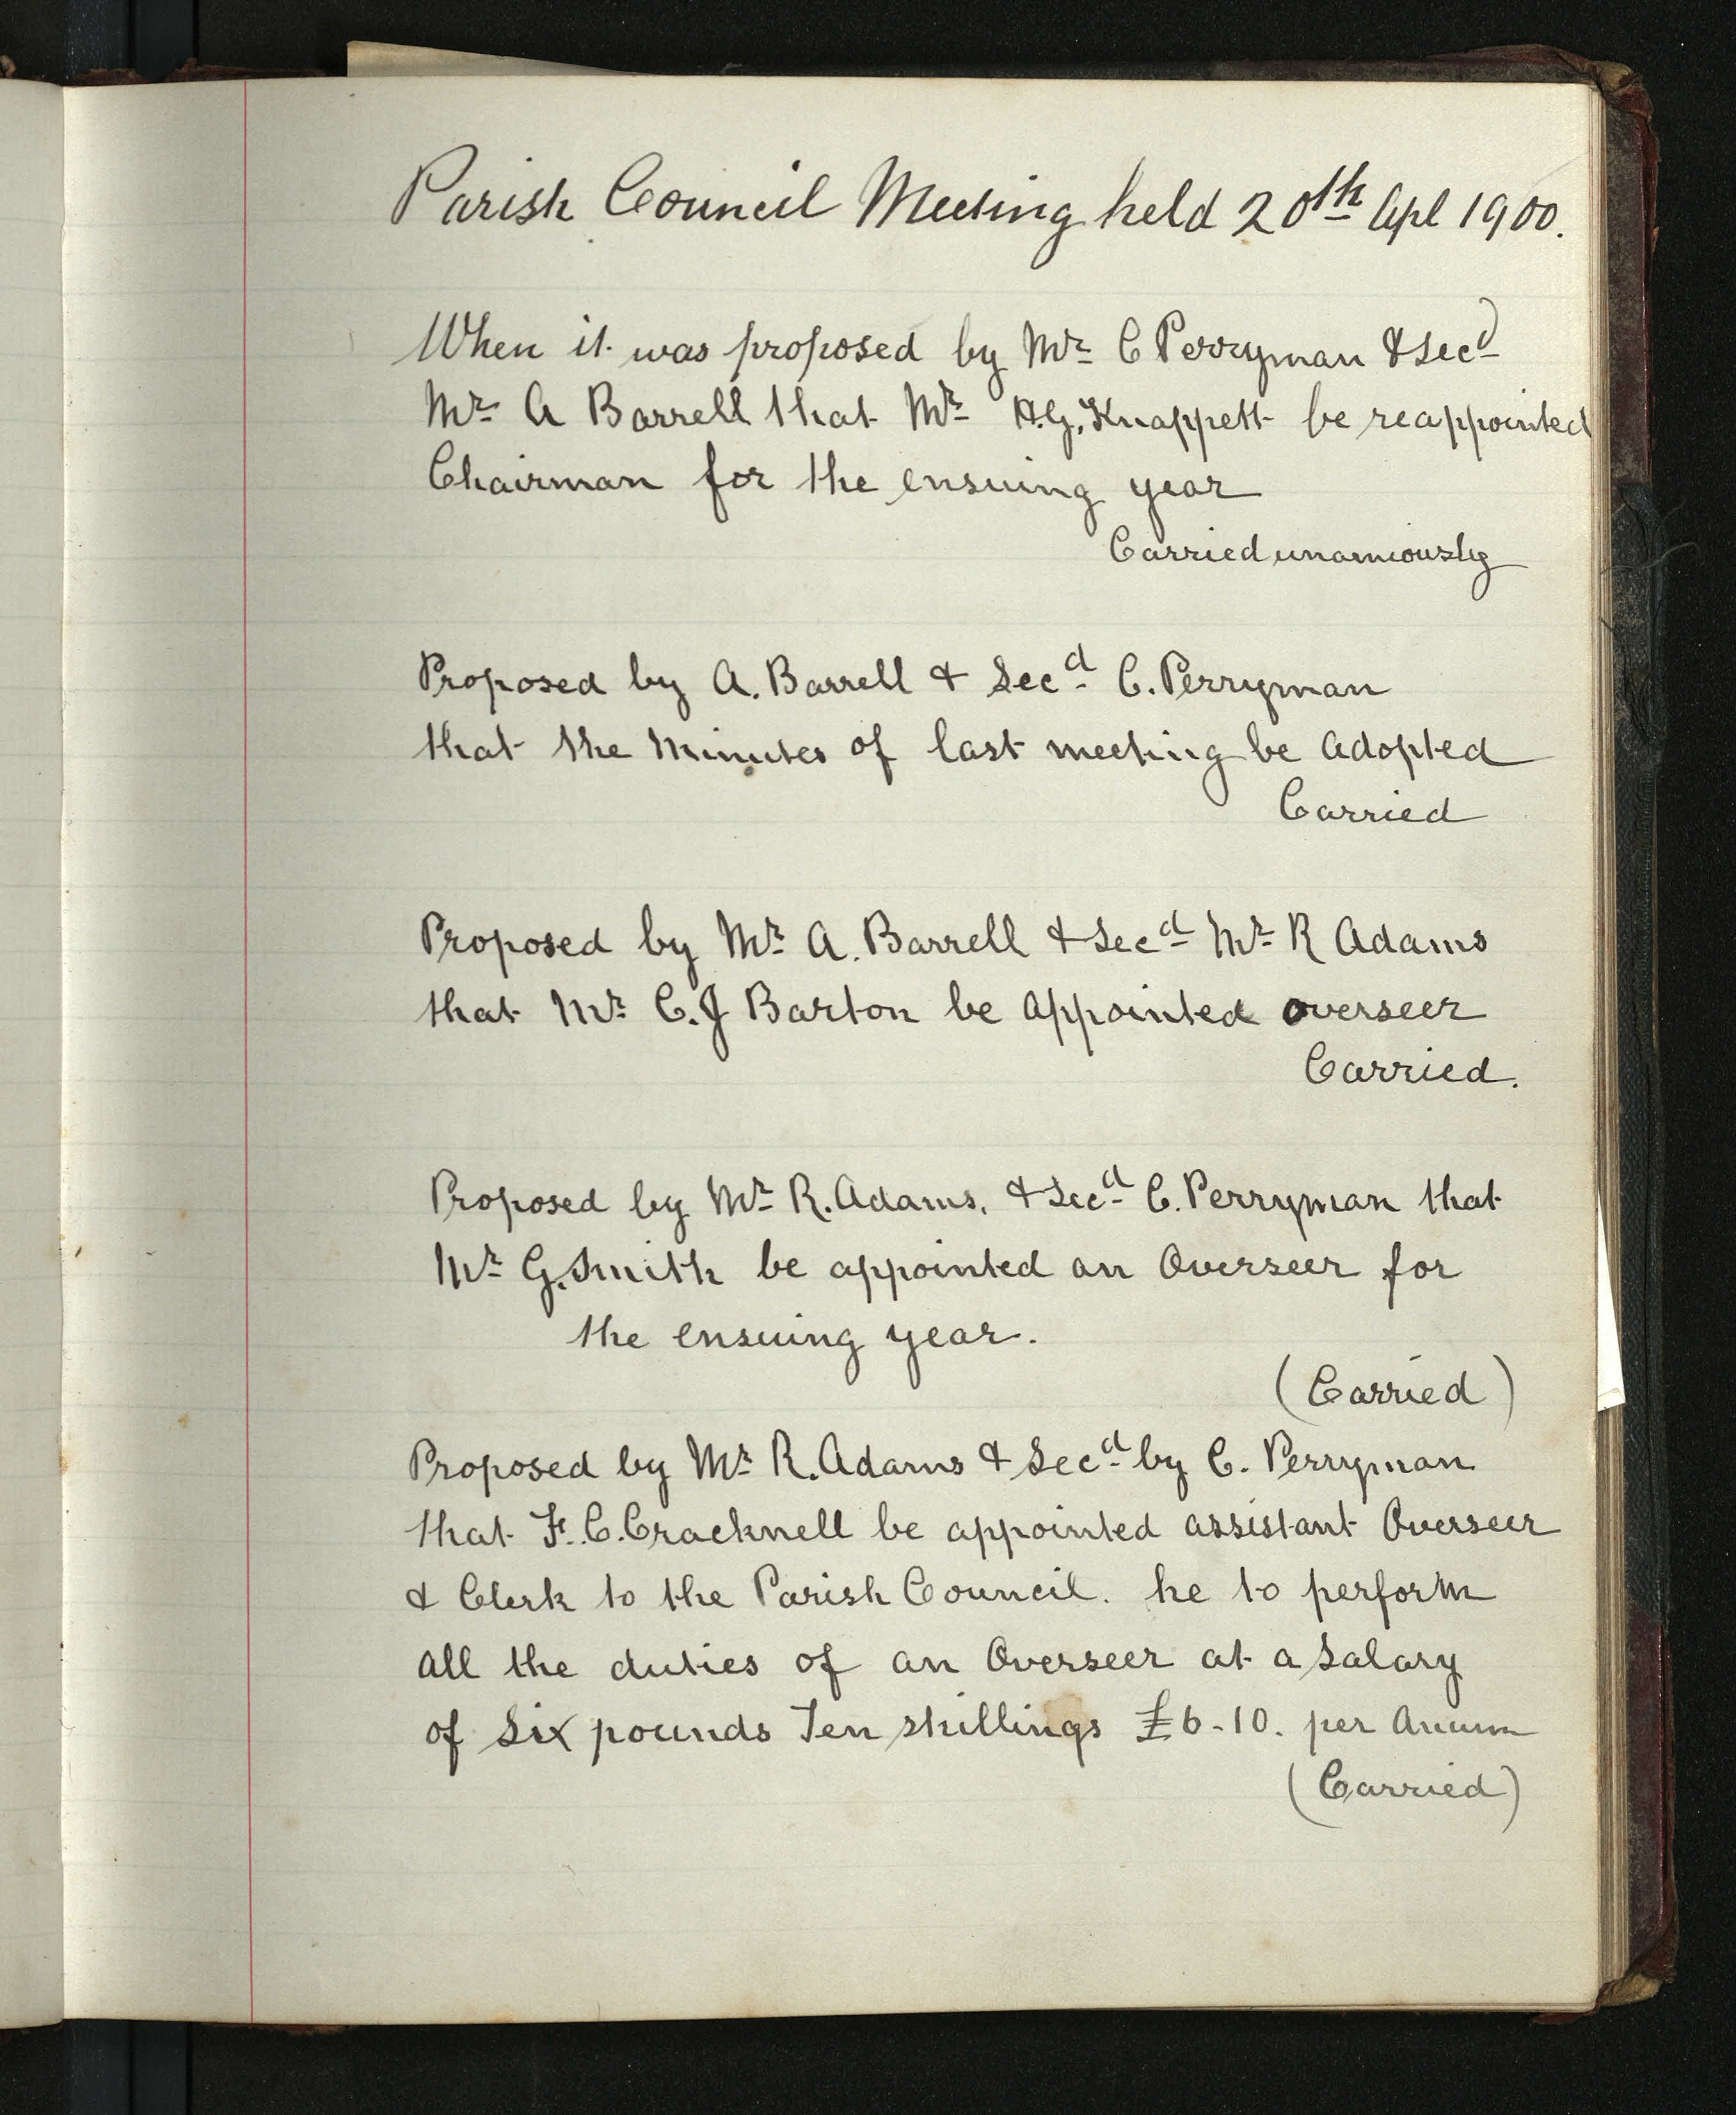 Parish Council Meeting held 20th Apl 1900.
When it was proposed by Mr C Perryman & Secd
Mr A Barrell that Mr H.G. Knappett be reappointed
Chairman for the ensuing year
Carried unamiously
Proposed by A. Barrell & Secd C. Perryman
that the Minutes of last meeting be adopted
Carried
Proposed by Mr A. Barrell & Secd Mr R Adams
that Mr C.J Barton be appointed overseer
Carried.
Proposed by Mr R. Adams. & Secd C. Perryman that
Mr G. Smith be appointed an Overseer for
the ensuing year.
(Carried)
Proposed by Mr R. Adams & Secd by C. Perryman
that F. C. Cracknell be appointed assistant Overseer
& Clerk to the Parish Council. he to perform
all the duties of an Overseer at a Salary
of Six pounds Ten shillings £6-10. per Annum
(Carried)